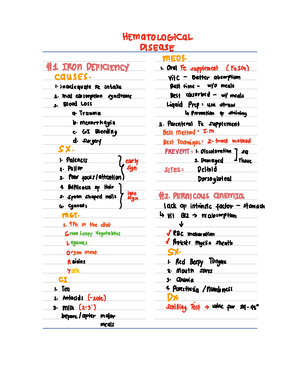 HEMATOLOGICAL
DISEASE
#1 IRON DEFICIENCY
CAUSES.
1. inadequate Fe intake
2. mal absorption syndrome
3. Blood Loss
a. Trauma
b. menorrhagia
c. GI Bleeding
d. surgery
SX.
1. Paleness
2. Pallor
3. Poor focus/attention
early sign
4. Brittleness of Hair
5. spoon shaped nails
6. cyanosis
late sign
MGT.
1. ↑Fe in the diet
Green leafy Vegetables
Legumes
Organ meat
Raisins
Yolk
CI
1. Tea
2. Antacids
3. milk
before/after major
meals
MEDS.
1. Oral Fe supplement (FeSO4)
Vit C - Better absorption
Best time - w/o meals
Best absorbed - w/ meals
Liquid Prep: use straw
↳ Prevention of staining
2. Parenteral Fe supplement
Best Method: I.M
Best Technique: Z-track method
PREVENT: 1. Discoloration
2. Damaged
SQ
Tissue
SITES: Deltoid
Dorsogluteal
#2 PERNICIOUS ANEMIA
Lack of intrinsic factor - stomach
↳ Vit B12 → reabsorption
↓
✓ RBC maturation
✓ Protect myelin sheath
SX.
1. Red Beefy Tongue
2. Mouth sores
3. Anemia
4. Paresthesia/Numbness
DX.
Schilling Test → urine for 24-48°